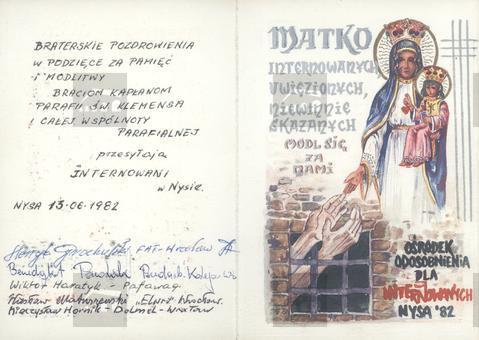 BRATERSKIE POZDROWIENIA
W PODZIĘCE ZA PAMIĘĆ
I MODLITWY
BRACIOM KAPŁANOM
PARAFII ŚW. KLEMENSA
I CAŁEJ WSPÓLNOTY
PARAFIALNEJ
przesyłają
INTERNOWANI
w Nysie.
NYSA 13-06-1982
FAT-Wrocław
Benedykt
Wiktor Haratyk - Pafawag
"Elwro" Wrocław.
Mieczysław Hornik - Dolmel - Wrocław
MATKO
INTERNOWANYCH,
UWIĘZIONYCH,
NIEWINNIE
SKAZANYCH
MÓDL SIĘ
ZA
NAMI
OŚRODEK
ODOSOBNIENIA
DLA
INTERNOWANYCH
NYSA '82